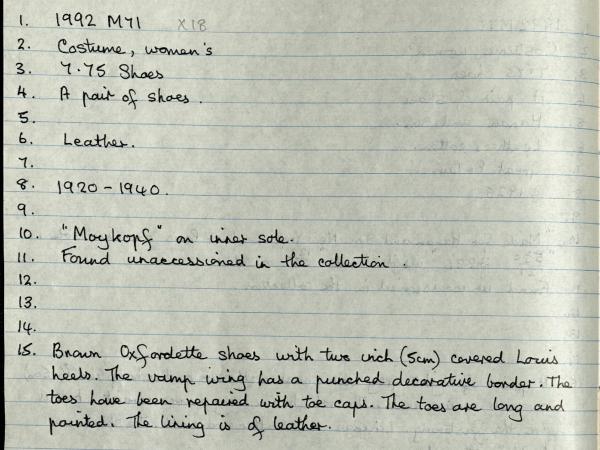 1. 1992 M71 X18
2. Costume, women's
3. 7.75 Shoes
4. A pair of shoes.
5.
6. Leather.
7.
8. 1920 - 1940.
9.
10. "Moykopf" on inner sole.
11. Found unaccessioned in the collection.
12.
13.
14.
15. Brown Oxfordette shoes with two inch (5cm) covered Louis
heels. The vamp wing has a punched decorative border. The
toes have been repaired with toe caps. The toes are long and
pointed. The lining is of leather.